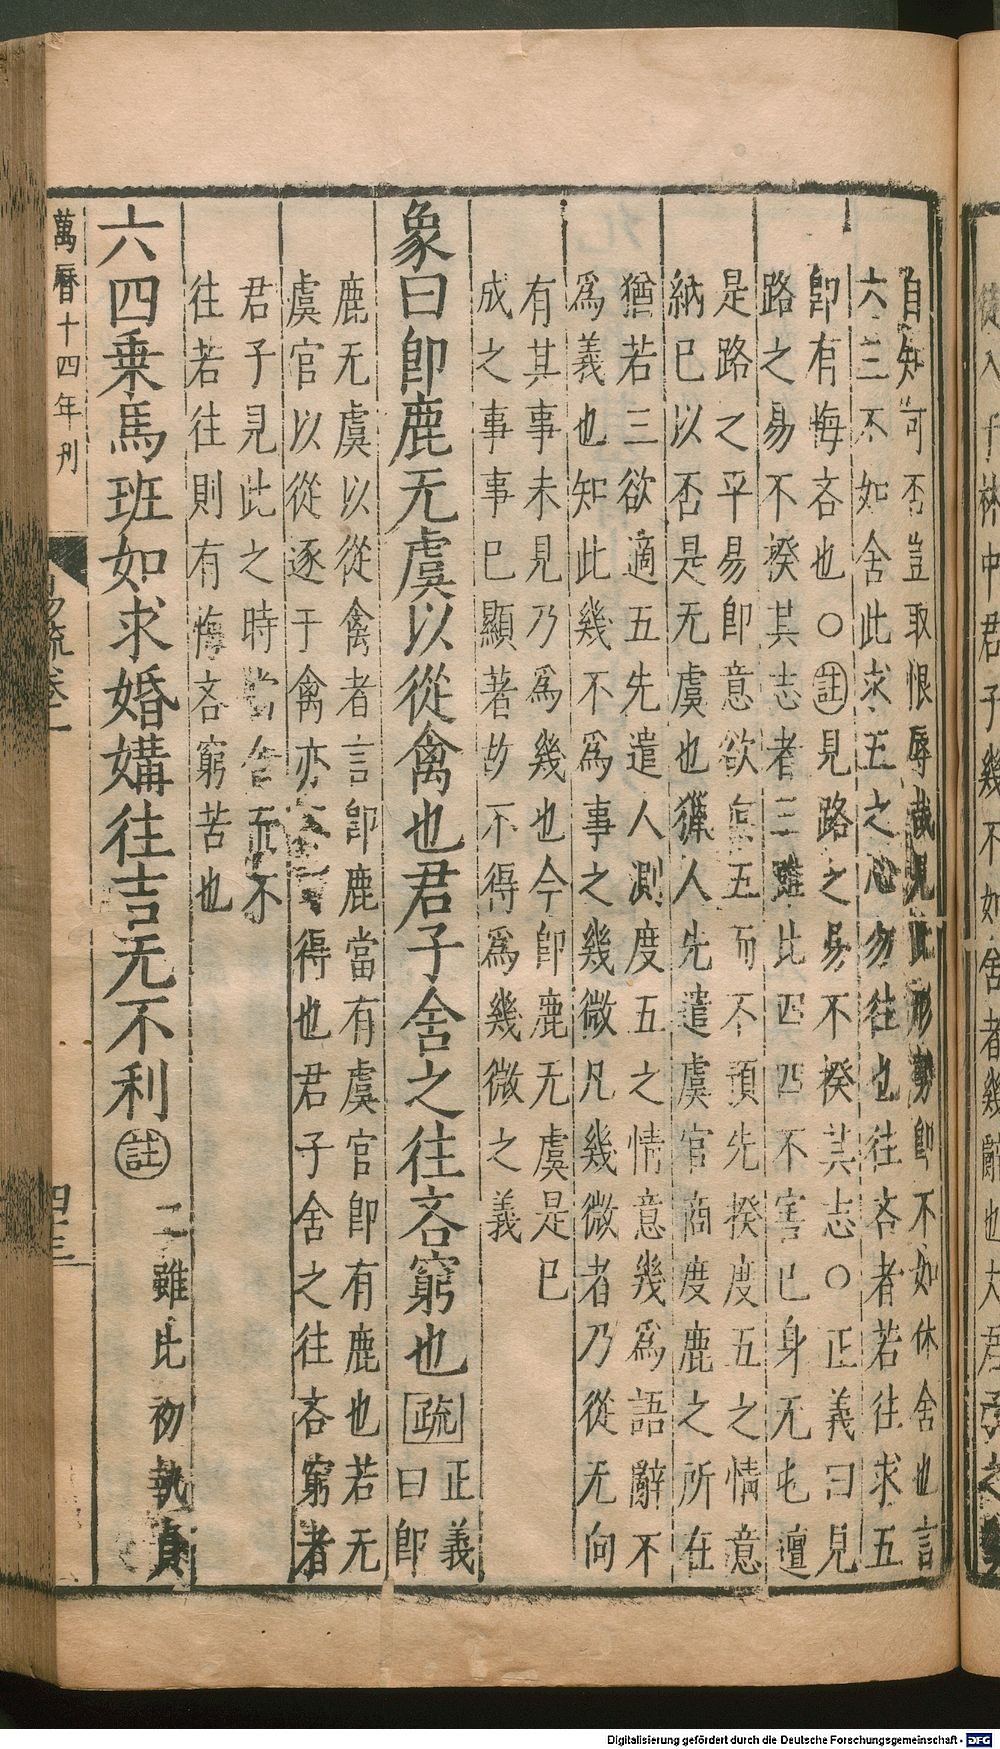 自知可否豈取恨辱哉見此形勢卽不如休舍也言
六三不如舍此求五之心勿往也往吝者若往求五
卽有悔吝也○註見路之易不揆其志○正義曰見
路之易不揆其志者三雖比四四不害已身无屯邅
是路之平易卽意欲向五而不預先揆度五之情意
納已以否是无虞也獵人先遣虞官商度鹿之所在
猶若三欲適五先遣人測度五之情意幾爲語辭不
爲義也知此幾不爲事之幾微凡幾微者乃從无向
有其事未見乃爲幾也今卽鹿无虞是已
成之事事已顯著故不得爲幾微之義
象曰卽鹿无虞以從禽也君子舍之往吝窮也疏
正義
曰卽
鹿无虞以從禽者言卽鹿當有虞官卽有鹿也若无
虞官以從逐于禽亦不得也君子舍之往吝窮者
君子見此之時當舍而不
往若往則有悔吝窮苦也
六四乗馬班如求婚媾往吉无不利註
二雖比初執貞
萬曆十四年刋
易疏卷一
四十三
從入于林中君子幾不如舍者幾辭也大君子之
Digitalisierung gefördert durch die Deutsche Forschungsgemeinschaft - DFG